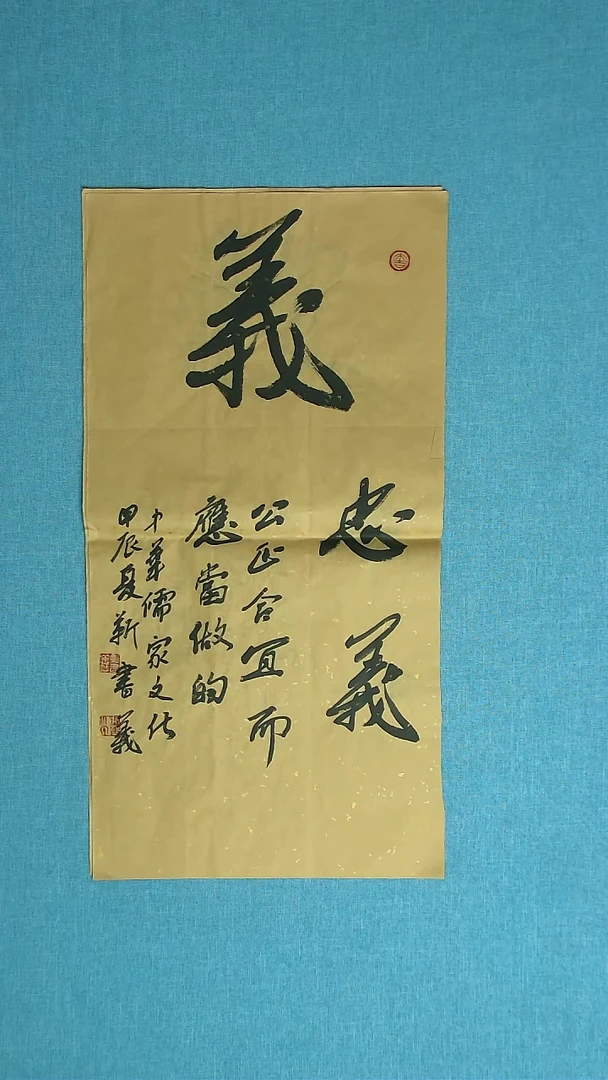 義
忠義
公正合宜而
應當做的
中華儒家文化
甲辰夏靳書義